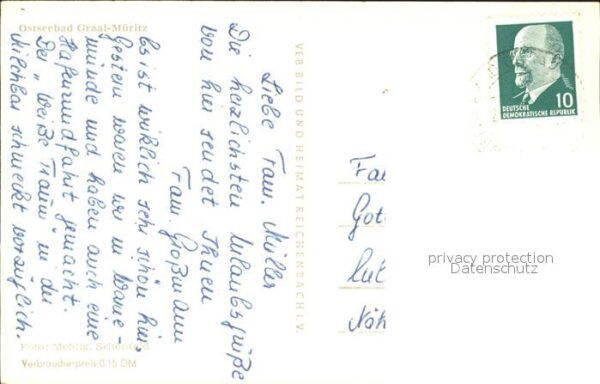 Ostseebad Graal-Müritz
Liebe Fam. Müller
Die herzlichsten Urlaubsgrüße
von hier sendet Ihnen
Fam. Großmann
Es ist wirklich sehr schön hier.
Gestern waren wir in Warne-
münde und haben auch eine
Hafenrundfahrt gemacht.
Der "Weiße Traum" in der
Milchbar schmeckt vorzüglich.
Foto: Mehlig, Schönfeld
Verbraucherpreis 0,15 DM
VEB BILD UND HEIMAT REICHENBACH I. V.
DEUTSCHE
DEMOKRATISCHE REPUBLIK
10
Fa
Got
Näh
privacy protection
Datenschutz